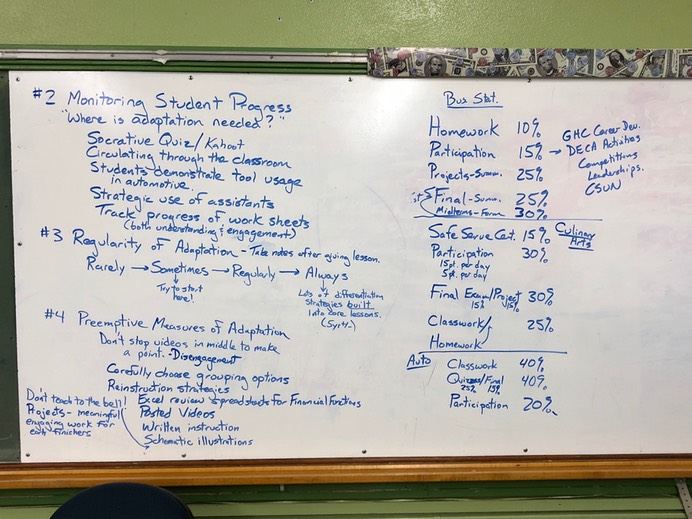 #2 Monitoring Student Progress
"Where is adaptation needed?"
Socrative Quiz/Kahoot
Circulating through the classroom
Students demonstrate tool usage
in automotive.
Strategic use of assistants
Track progress of work sheets
(both understanding & engagement)
#3 Regularity of Adaptation - Take notes after giving lesson.
Rarely → Sometimes → Regularly → Always
Try to start
here!
Lots of differentiation
strategies built
into core lessons.
(5yr+)
#4 Preemptive Measures of Adaptation
Don't stop videos in middle to make
a point. - Disengagement
Carefully choose grouping options
Reinstruction strategies
Excel review spreadsheets for Financial Functions
Posted Videos
Written instruction
Schematic illustrations
Don't teach to the bell!
Projects - meaningful
engaging work for
early finishers
Bus Stat.
Homework 10%
Participation 15% →
Projects-Summ. 25%
Final - Summ. 25%
Midterms - Form 30%
GHC Career Dev.
DECA Activities
Competitions
Leaderships.
CSUN
Culinary
Arts
Safe Serve Cert. 15%
Participation 30%
15pt. per day
5pt. per day
Final Exam/Project 30%
15% 15%
Classwork/ 25%
Homework
Auto
Classwork 40%
Quizzes/Final 40%
25% 15%
Participation 20%